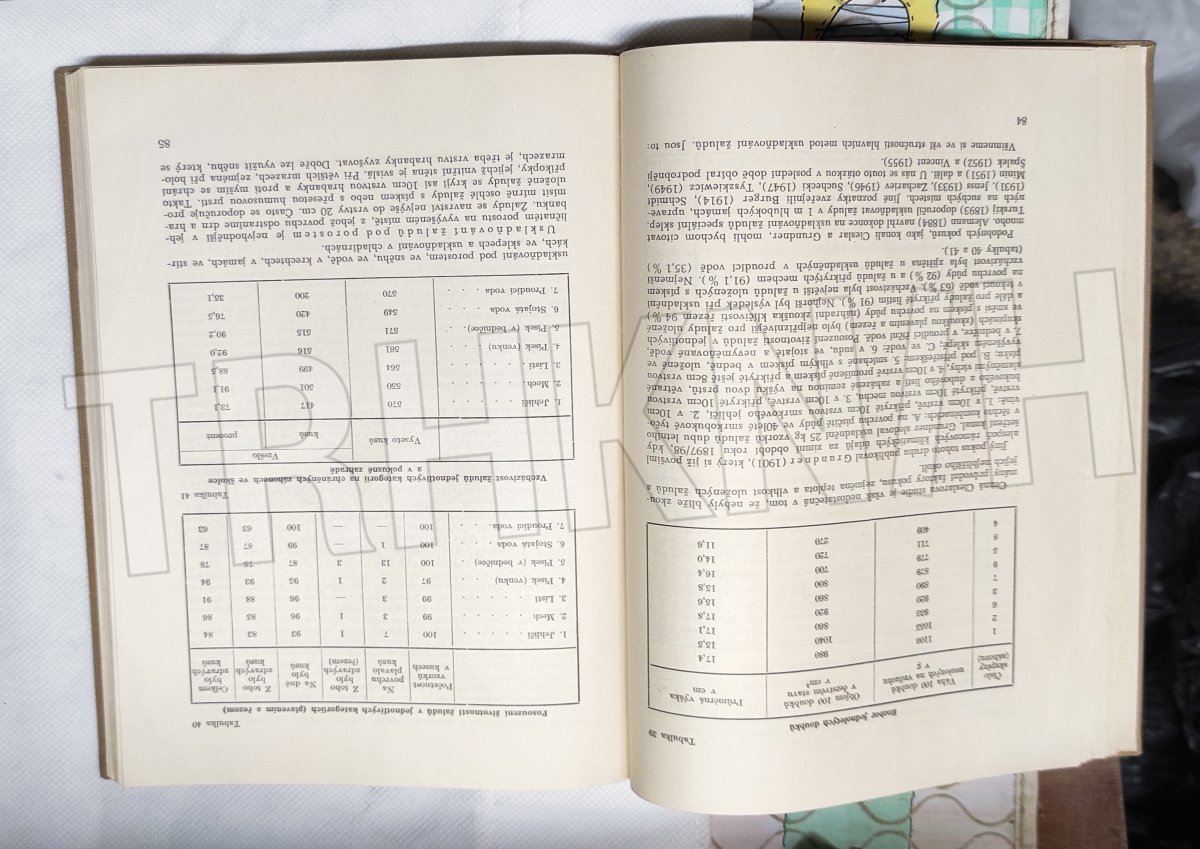 Tabulka 39
Rozbor jednoletých doubků
Číslo skupiny (záhonu) | Váha 100 doubků usušených na vzduchu v g | Objem 100 doubků v čerstvém stavu v cm³ | Průměrná výška v cm
1 1106 980 17,4
2 1055 1040 15,5
6 935 860 17,1
3 920 920 17,8
7 890 860 15,6
9 879 800 15,8
5 779 700 16,4
8 711 720 14,0
4 409 270 11,6
Cenná Cieslarova studie je však nedostatečná v tom, že nebyly blíže zkou-
mány průvodní faktory pokusu, zejména teplota a vlhkost uložených žaludů a
jejich nejbližšího okolí.
Jiný pokus tohoto druhu publikoval Grundner (1901), který si již povšiml
alespoň rámcových klimatických údajů za zimní období roku 1897/98, kdy
šetření konal. Grundner sledoval uskladnění 25 kg vzorků žaludů dubu letního
v těchto kombinacích: A. na povrchu písčité půdy ve 40leté smrkobukové tyčo-
vině: 1. v 10cm vrstvě, přikryté 10cm vrstvou smrkového jehličí, 2. v 10cm
vrstvě, přikryté 10cm vrstvou mechu, 3. v 10cm vrstvě, přikryté 10cm vrstvou
bukového a dubového listí a zaházené zeminou na výšku dvou prstů, větrané
slaměnými víchy, 4. v 10cm vrstvě promíšené pískem a přikryté ještě 8cm vrstvou
písku; B. pod přístřeškem: 5. smíchané s vlhkým pískem v bedně, uložené ve
vyvýšeném sklepě; C. ve vodě: 6. v sudu, ve stojaté a nevyměňované vodě,
7. v bedničce, v proudící říční vodě. Posouzení životnosti žaludů v jednotlivých
skupinách (zkouškou plavením a řezem) bylo nejpříznivější pro žaludy uložené
ve směsi s pískem na povrchu půdy (náhradní zkouška klíčivosti řezem 94 %)
a dále pro žaludy přikryté listím (91 %). Nejhorší byl výsledek při uskladnění
v tekoucí vodě (63 %). Vzcházivost byla největší u žaludů uložených s pískem
na povrchu půdy (92 %) a u žaludů přikrytých mechem (91,1 %). Nejmenší
vzcházivost byla zjištěna u žaludů uskladněných v proudící vodě (35,1 %)
(tabulky 40 a 41).
Podobných pokusů, jako konali Cieslar a Grundner, mohli bychom citovat
mnoho. Alemann (1884) navrhl dokonce na uskladňování žaludů speciální sklep.
Turský (1893) doporučil uskladňovat žaludy v 1 m hlubokých jamách, uprave-
ných na suchých místech. Jiné poznatky zveřejnili Burger (1914), Schmidt
(1931), Jensr (1933), Zacharjev (1946), Suchecki (1947), Tyszkiewicz (1949),
Minin (1951) a další. U nás se touto otázkou v poslední době obíral podrobněji
Špalek (1952) a Vincent (1955).
Všimneme si ve vší stručnosti hlavních metod uskladňování žaludů. Jsou to:
84
Tabulka 40
Posouzení životnosti žaludů v jednotlivých kategoriích (plavením a řezem)
Početnost vzorků v kusech | Na povrchu plavalo kusů | Z toho bylo zdravých (řezem) | Na dně bylo kusů | Z toho bylo zdravých kusů | Celkem bylo zdravých kusů
1. Jehličí . . . . . 100 7 1 93 83 84
2. Mech . . . . . 99 3 1 96 85 86
3. Listí . . . . . 99 3 — 96 88 91
4. Písek (venku) . . 97 2 1 95 93 94
5. Písek (v bedničce) . 100 13 3 87 75 78
6. Stojatá voda . . . 100 1 — 99 87 87
7. Proudící voda. . . 100 — — 100 63 63
Tabulka 41
Vzcházivost žaludů jednotlivých kategorií na chráněných záhonech ve školce
a v pokusné zahradě
Vyseto kusů | Vzešlo
kusů | procent
1. Jehličí . . . . 570 417 73,1
2. Mech . . . . 550 501 91,1
3. Listí . . . . 564 499 88,5
4. Písek (venku) . . . 561 516 92,0
5. Písek (v bedničce). . . 571 515 90,2
6. Stojatá voda . . . 549 420 76,5
7. Proudící voda . . . 570 200 35,1
uskladňování pod porostem, ve sněhu, ve vodě, v krechtech, v jamách, ve stír-
kách, ve sklepech a uskladňování v chladírnách.
Uskladňování žaludů pod porostem je nejvhodnější v jeh-
ličnatém porostu na vyvýšeném místě, z jehož povrchu odstraníme drn a hra-
banku. Žaludy se navrství nejvýše do vrstvy 20 cm. Často se doporučuje pro-
mísit mírně oschlé žaludy s pískem nebo s přesetou humusovou prstí. Takto
uložené žaludy se kryjí asi 10cm vrstvou hrabanky a proti myším se chrání
příkopky, jejichž vnitřní stěna je svislá. Při větších mrazech, zejména při holo-
mrazech, je třeba vrstvu hrabanky zvyšovat. Dobře lze využít sněhu, který se
85
TRHKNIH